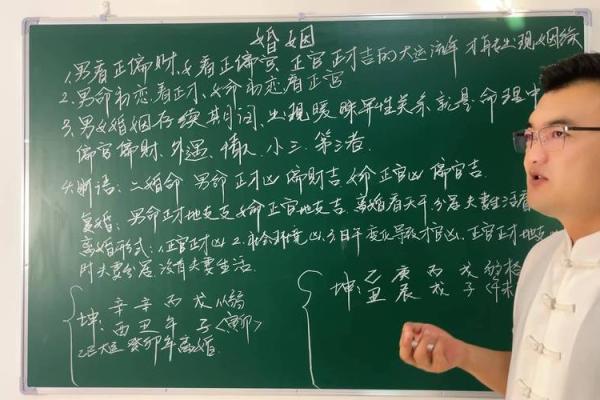 婚姻
1.男看正偏财、女看正偏官、正官正财吉的大运流年才能出现姻缘
2.男命初恋看正财、女命初恋看正官
3.男女婚姻存续其间、出现暧昧异性关系就是命理中
偏官偏财、外遇、情人、小三、第三者.
4.断语:二婚命 男命正财凶 偏财吉 女命正官凶 偏官吉
复婚:男命正财地支 女命正官地支吉.离婚看天干 分居夫妻生活看
离婚形式:1.正官正财凶 2. 凶、3.日午变化导致才官凶、正官正财地支
时夫妻分居 没有夫妻生活.
坤:辛辛丙戊
酉丑午子<寅卯>
大运 癸卯年离婚.
坤:乙庚丙戊
丑辰戌子